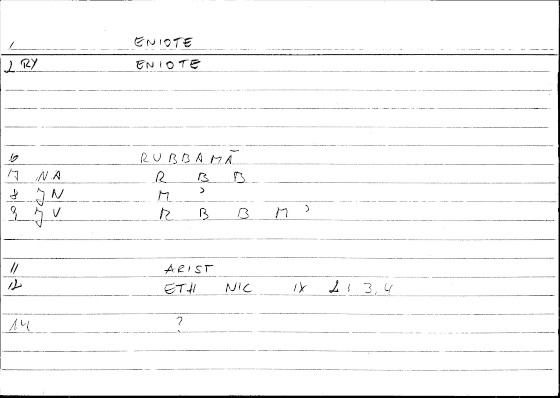 1 ENIOTE
2 RY ENIOTE
6 RUBBAMĀ
7 NA R B B
8 JN M ʾ
9 JV R B B M ʾ
11 ARIST
12 ETH NIC IX 1 3,4
14 ?